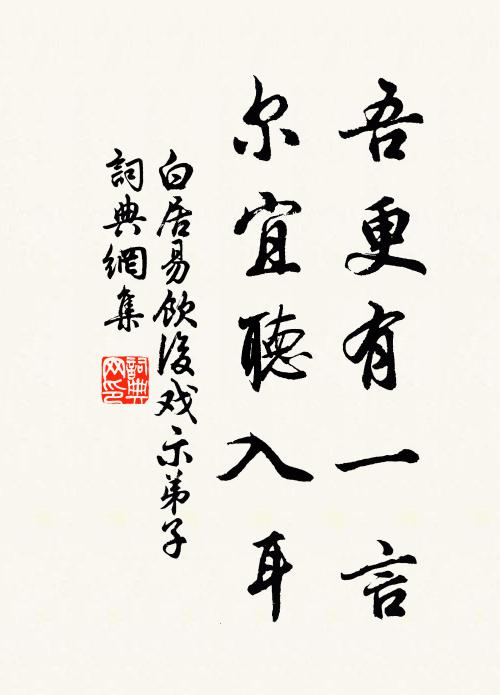 吾更有一言
尔宜聽入耳
白居易飲後戏示弟子
詞典網集
詞典网印